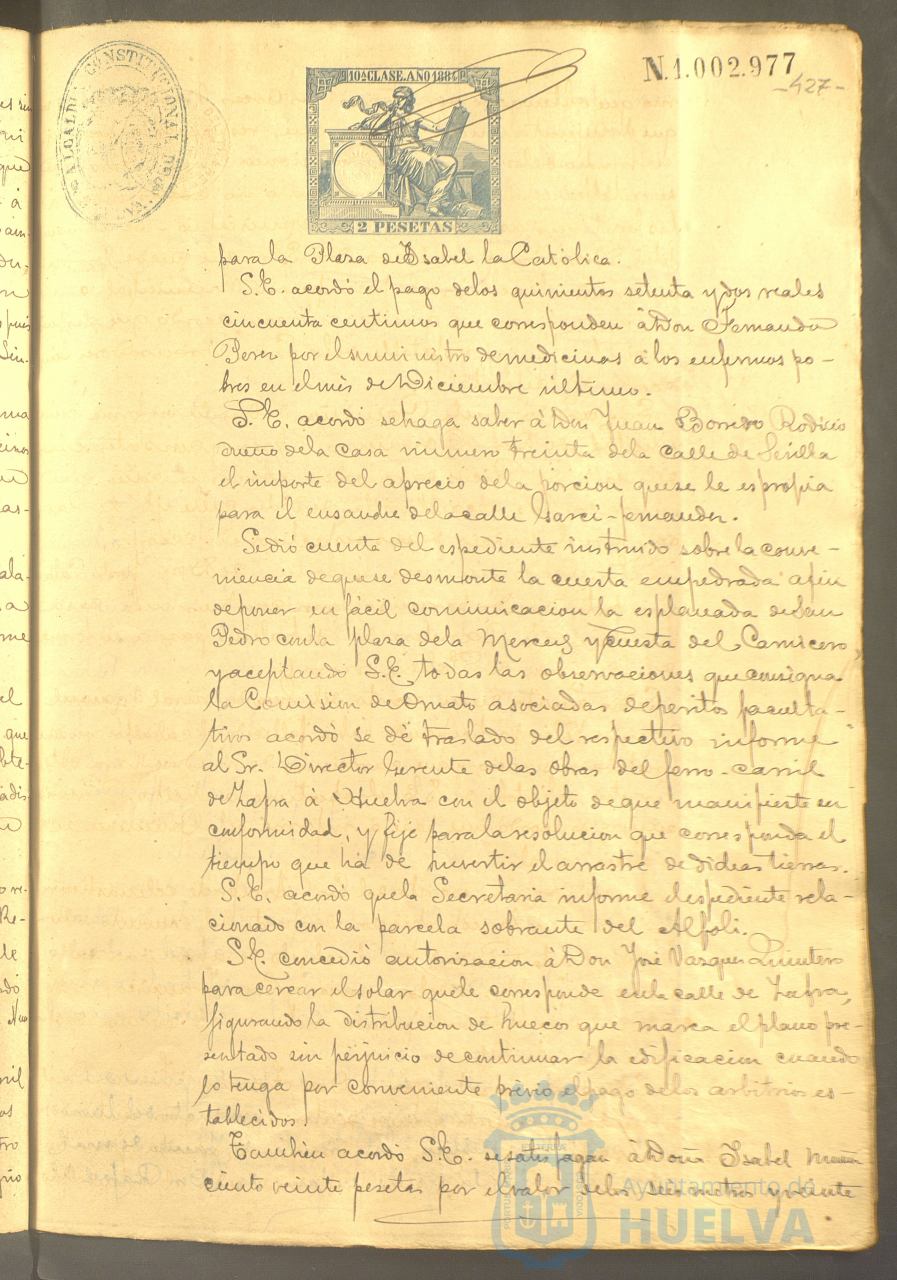 ALCALDIA CONSTITUCIONAL DE
10ª CLASE. AÑO 1884
2 PESETAS
N.1.002.977
-427-
para la Plaza de Isabel la Católica.
S.E. acordó el pago delos quinientos setenta y dos reales
cincuenta centimos que corresponden á Don Fernando
Perez por el suministro de medicinas á los enfermos po-
bres en el mes de Diciembre último.
S.E. acordó se haga saber á Don Juan Borrero Rodicio
dueño dela casa número treinta dela calle de Sevilla
el importe del aprecio dela porcion que se le espropia
para el ensanche dela calle Garci-fernandez.
Se dió cuenta del espediente instruido sobre la conve-
niencia de que se desmonte la cuesta empedrada á fin
de poner en fácil comunicacion la esplanada de San
Pedro con la plaza dela Merced y Cuesta del Carnicero,
y aceptando S.E. todas las observaciones que consigna
la Comision de Ornato asociadas de peritos faculta-
tivos acordó se dé traslado del respectivo informe
al Sr. Director Gerente delas obras del ferro-carril
de Zafra á Huelva con el objeto de que manifieste su
conformidad, y fije para la resolucion que corresponda el
tiempo que há de invertir el arrastre de dichas tierras.
S.E. acordó que la Secretaria informe el espediente rela-
cionado con la parcela sobrante del Alfoli.
S.E. concedió autorizacion á Don José Vazquez Quintero
para cercar el solar que le corresponde en la calle de Zafra,
figurando la distribucion de huecos que marca el plano pre-
sentado sin perjuicio de continuar la edificacion cuando
lo tenga por conveniente previo el pago delos arbitrios es-
tablecidos.
Tambien acordó S.E. se satisfagan á Doña Isabel
ciento veinte pesetas por el valor delos seis metros y veinte
Ayuntamiento de
HUELVA